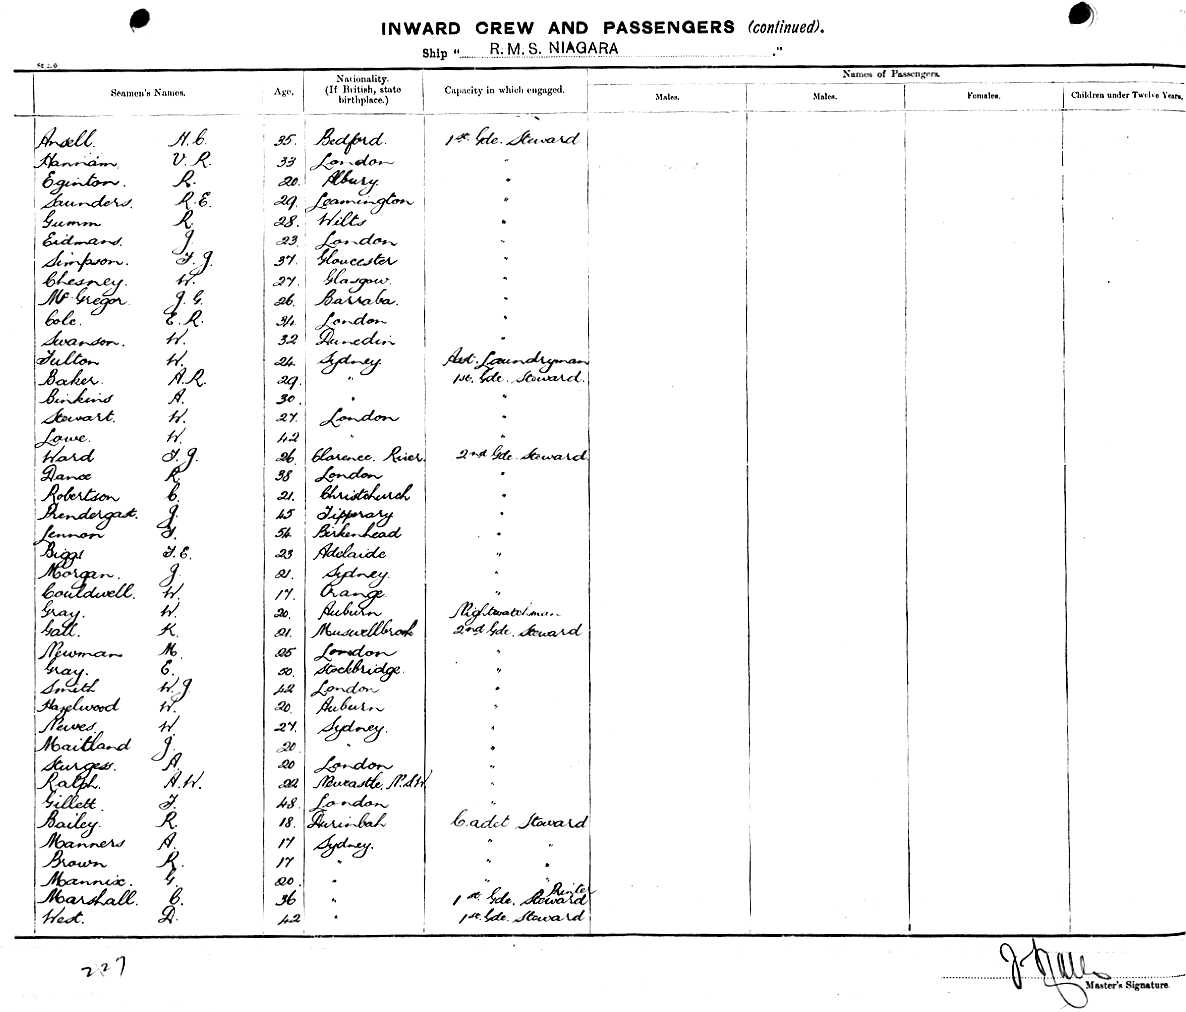 INWARD CREW AND PASSENGERS (continued).
Ship " R.M.S. NIAGARA ."
Names of Passengers.
Seamen's Names. Age. Nationality. (If British, state birthplace.) Capacity in which engaged. Males. Males. Females. Children under Twelve Years.
Ansell. H.C. 35. Bedford. 1st Gde. Steward
Hannam. V.R. 33 London "
Eginton. R. 20. Albury. "
Saunders. R.E. 29. Leamington "
Gumm R. 28. Wilts "
Eidmans. J. 23. London "
Simpson. F.J. 37. Gloucester "
Chesney. W. 27. Glasgow. "
McGregor J.G. 26. Barraba. "
Cole. E.R. 34. London "
Swanson. W. 32 Dunedin "
Fulton W. 24. Sydney. Asst. Laundryman
Baker. A.R. 29. " 1st. Gde. Steward.
Binkins A. 30. " "
Stewart. W. 27. London "
Lowe. W. 42 " "
Ward F.J. 26. Clarence. River. 2nd Gde. Steward
Dance R. 38 London "
Robertson C. 21. Christchurch "
Prendergast. J. 45 Tipperary "
Lennon F. 54 Birkenhead "
Biggs F.E. 23 Adelaide "
Morgan. J. 21. Sydney. "
Couldwell. W. 17. Orange "
Gray. W. 20. Auburn Nightwatchman
Gall. K. 21. Muswellbrook 2nd Gde. Steward
Newman M. 25 London "
Gray. E. 50. Stockbridge. "
Smith W.J 42 London "
Hazelwood W. 20. Auburn "
Newes. W 27. Sydney. "
Maitland J. 20 " "
Sturgess. A. 20 London "
Ralph. A.W. 22 Newcastle, N.S.W. "
Gillett F. 48. London "
Bailey. R. 18. Durimbah Cadet Steward
Manners A. 17 Sydney. " "
Brown R. 17 " " "
Mannix. G. 20. " " "
Printer
Marshall. C. 36 " 1st. Gde. Steward
West. D. 42 " 1st. Gde. Steward
227
Master's Signature.